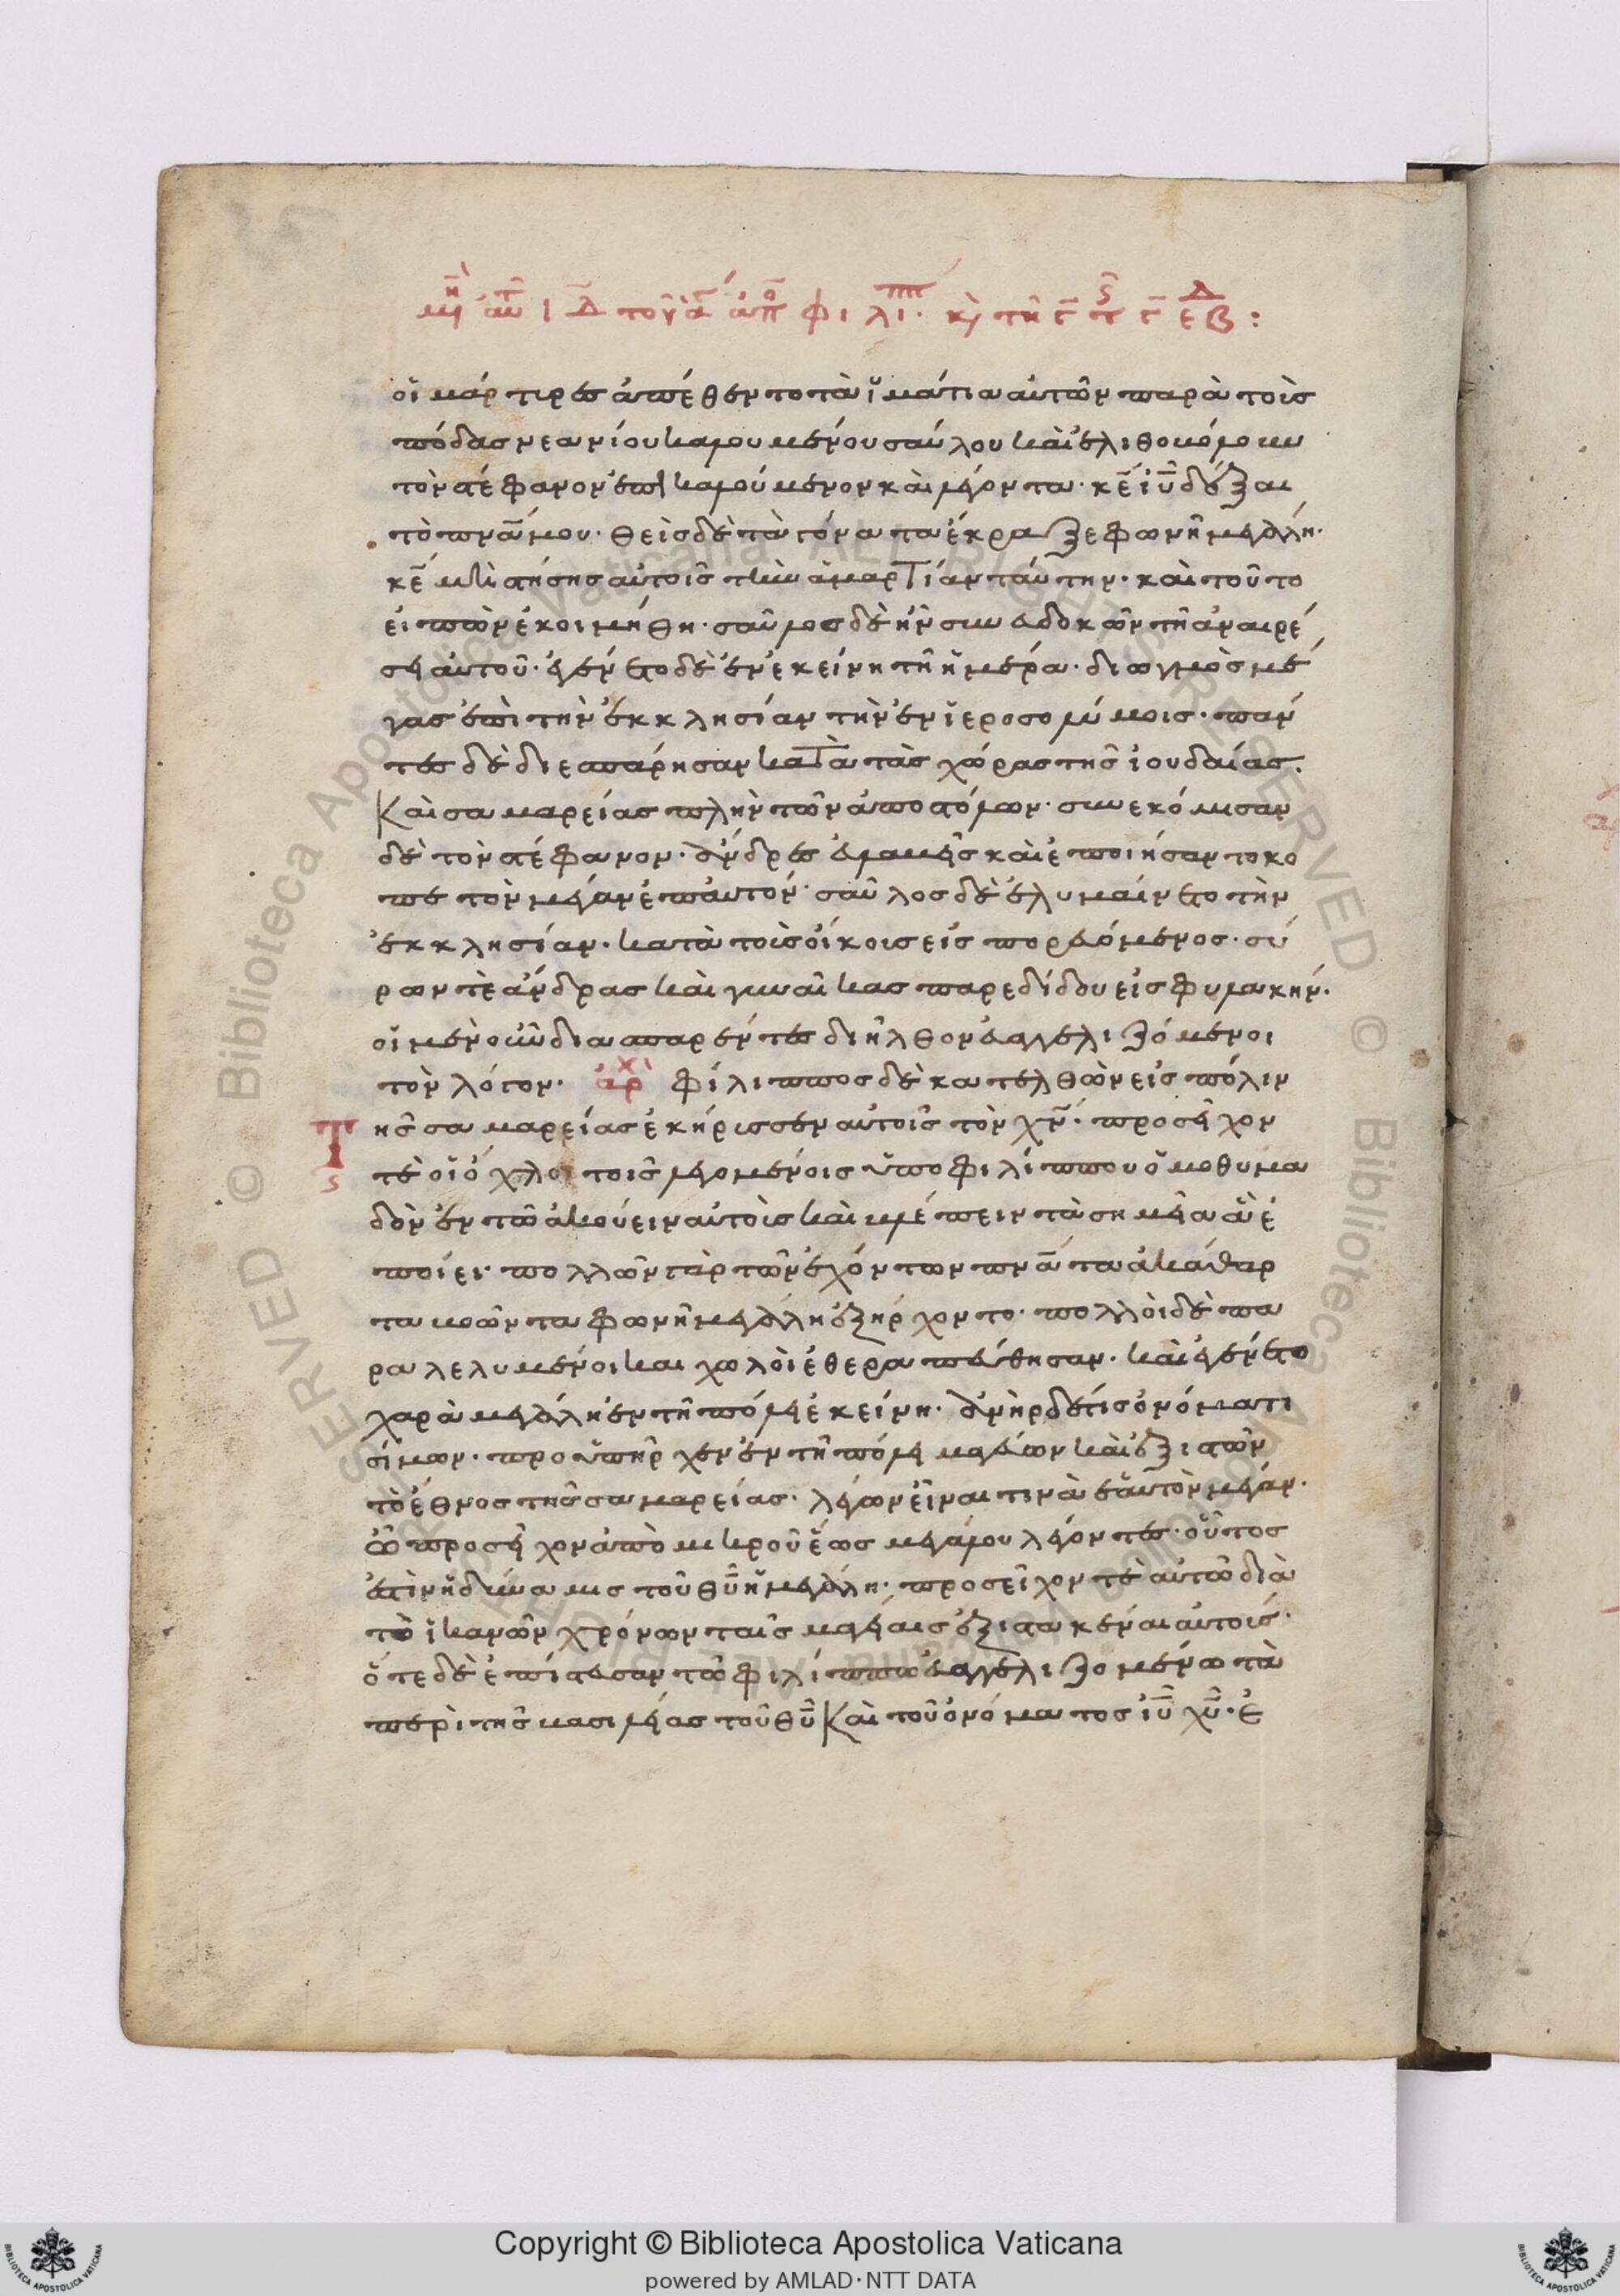 μη ὀκτ ιδ τοῦ ἁγ ἀπο φιλιππ· κ τῆ ς τ γ εβδ:
οἱ μάρτιρες ἀπέθεντο τὰ ἱμάτια αὐτῶν παρὰ τοὶς
πόδας νεανίου καλουμένου σαύλου καὶ ἐλιθοβόλουν
τὸν στέφανον ἐπικαλούμενον καὶ λέγοντα· κε ἰυ δέξαι
τὸ πνα μου· θεὶς δὲ τὰ γόνατα ἔκραξε φωνῆ μεγάλη·
κε μὴ στήσης αὐτοῖς τὴν ἁμαρτίαν ταύτην· καὶ τοῦτο
εἰπὼν ἐκοιμήθη· σαῦλος δὲ ἦν συνευδοκῶν τῆ ἀναιρέ
σει αὐτοῦ· ἐγένετο δὲ ἐν ἐκείνη τῆ ἡμέρα· διωγμὸς μέ
γας ἐπὶ τὴν ἐκκλησίαν τὴν ἐν ἱεροσολύμοις· πάν
τες δὲ διεσπάρησαν κατὰ τὰς χώρας τῆς ἰουδαίας·
Καὶ σαμαρείας πλὴν τῶν ἀποστόλων· συνεκόμισαν
δὲ τὸν στέφανον· ἄνδρες εὐλαβεῖς καὶ ἐποιήσαντο κο
πετὸν μέγαν ἐπαυτόν· σαῦλος δὲ ἐλυμαίνετο τὴν
ἐκκλησίαν· κατὰ τοὶς οἴκοις εἰσπορευόμενος· σύ
ρων τὲ ἄνδρας καὶ γυναῖκας παρεδίδου εἰς φυλακήν·
οἱ μὲν οὖν διασπαρέντες διῆλθον εὐαγγελιζόμενοι
τὸν λόγον· ἀρχ φίλιππος δὲ κατελθὼν εἰς πόλιν
Τῆς σαμαρείας ἐκήρισσεν αὐτοῖς τὸν χν· προσεῖχον
τὲ οἱ ὄχλοι τοῖς λεγομένοις ὑπο φιλίππου ὁμοθυμα
ς
δὸν ἐν τῶ ἀκούειν αὐτοὶς καὶ βλέπειν τὰ σημεῖα ἃ ἐ
ποίει· πολλῶν γὰρ τῶν ἐχόντων πνατα ἀκάθαρ
τα βοῶντα φωνῆ μεγάλη ἐξήρχοντο· πολλοὶ δὲ πα
ραλελυμένοι και χωλοὶ ἐθεραπεύθησαν· καὶ ἐγένετο
χαρὰ μεγάλη ἐν τῆ πόλει ἐκείνη· ἀνὴρ δέ τις ὀνόματι
σίμων· προυπῆρχεν ἐν τῆ πόλει μαγεύων καὶ ἐξιστῶν
τὸ ἔθνος τῆς σαμαρείας· λέγων εἶναι τινὰ ἑαυτὸν μέγαν·
ὧ προσεῖχον ἀπὸ μικροῦ ἕως μεγάλου λέγοντες· οὗτος
ἐστὶν ἡ δύναμις τοῦ θυ ἡ μεγάλη· προσεῖχον τὲ αὐτῶ διὰ
τὸ ἱκανῶν χρόνων ταῖς μαγείαις ἐξιστακέναι αὐτοίς·
ὅτε δὲ ἐπίστευσαν τῶ φιλίππω εὐαγγελιζομένω τὰ
περὶ τῆς βασιλείας τοῦ θυ Καὶ τοῦ ὀνόματος ἰυ χυ· ἐ
Copyright © Biblioteca Apostolica Vaticana
powered by AMLAD·NTT DATA